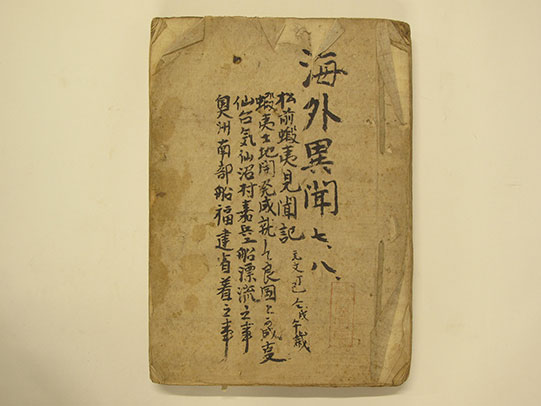 海外異聞七、八、
松前蝦夷見聞記
蝦夷土地開発成就して良国と成事
仙台気仙沼村嘉兵エ船漂流之事
奥州南部船福建省着之事